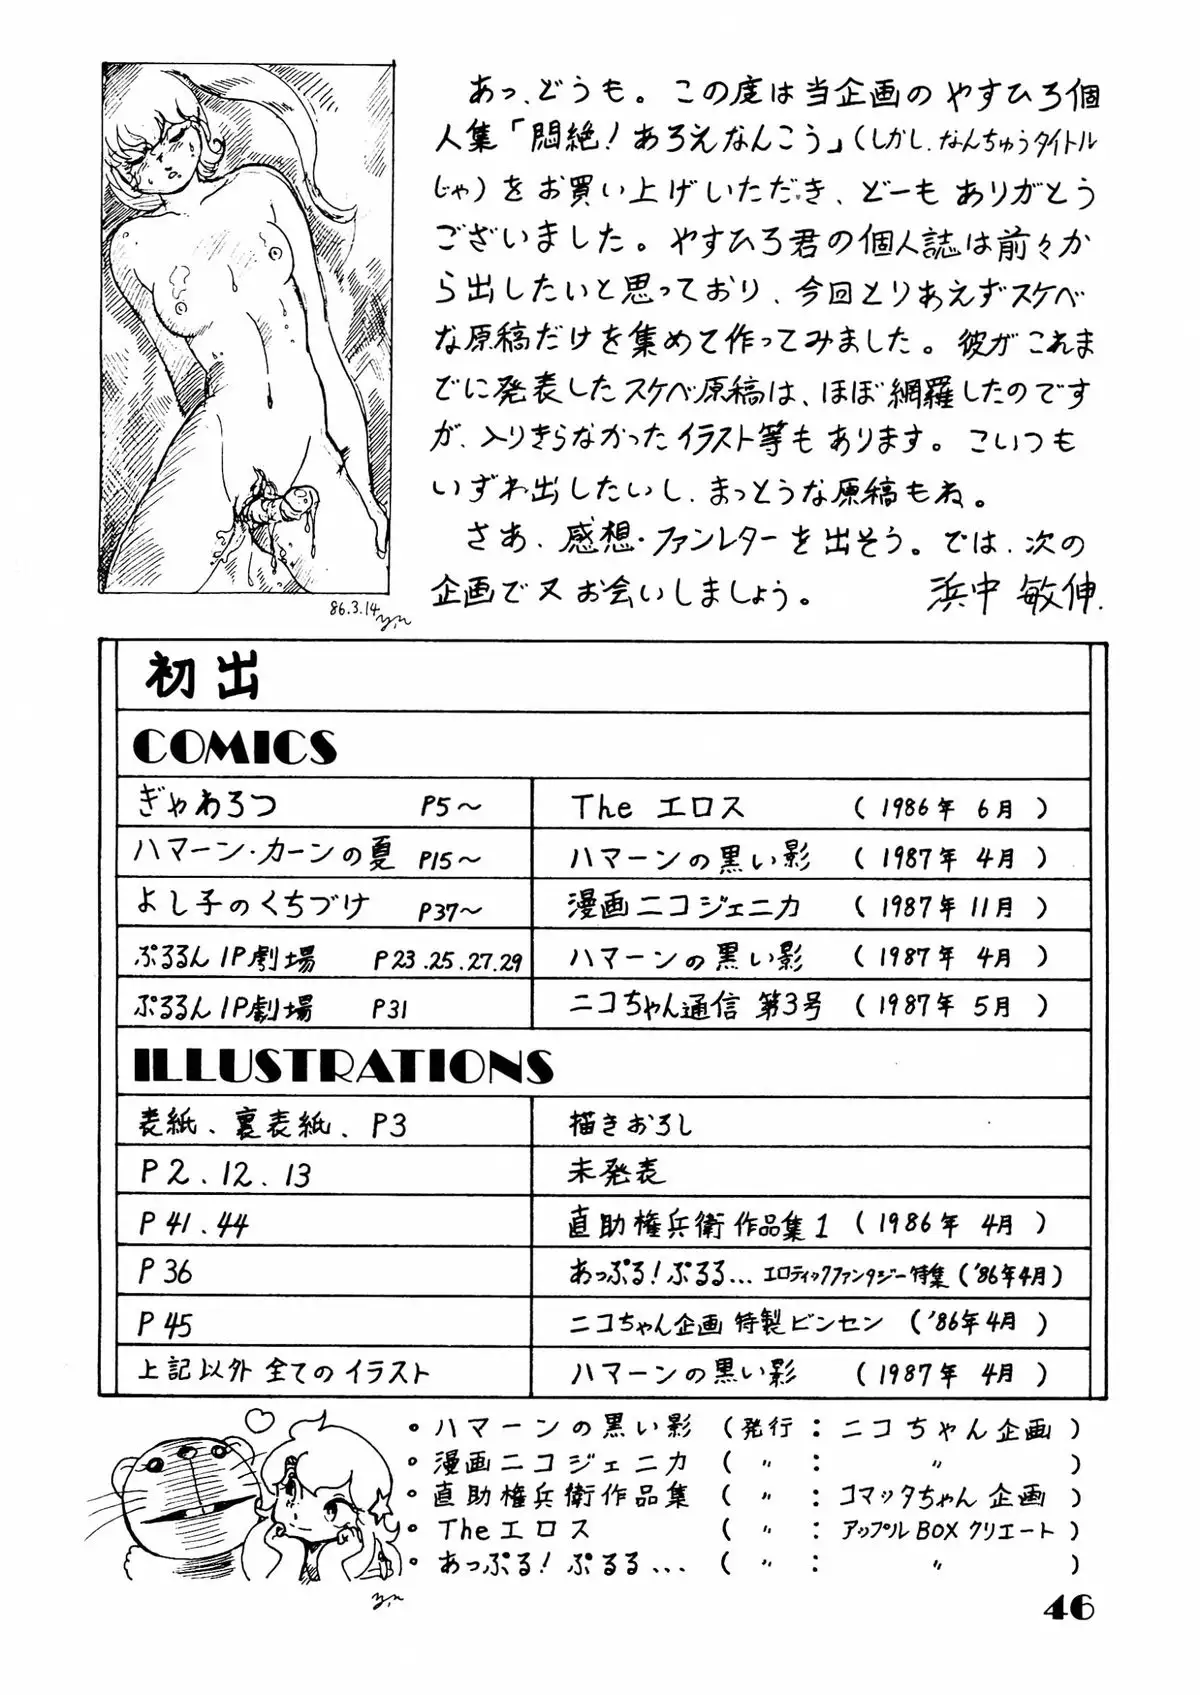 あっ、どうも。この度は当企画のやすひろ個
人集「悶絶！あろえなんこう」(しかし、なんちゅうタイトル
じゃ)をお買い上げいただき、どーもありがとう
ございました。やすひろ君の個人誌は前々か
ら出したいと思っており、今回とりあえずスケベ
な原稿だけを集めて作ってみました。彼がこれま
でに発表したスケベ原稿は、ほぼ網羅したのです
が、入りきらなかったイラスト等もあります。こいつも
いずれ出したいし、まっとうな原稿もね。
さあ、感想・ファンレターを出そう。では、次の
企画で又お会いしましょう。 浜中敏伸.
86.3.14
初出
COMICS
ぎゃわろつ P5～ Theエロス (1986年6月)
ハマーン・カーンの夏 P15～ ハマーンの黒い影 (1987年4月)
よし子のくちづけ P37～ 漫画ニコジェニカ (1987年11月)
ぷるるん1P劇場 P23.25.27.29 ハマーンの黒い影 (1987年4月)
ぷるるん1P劇場 P31 ニコちゃん通信 第3号 (1987年5月)
ILLUSTRATIONS
表紙、裏表紙、P3 描きおろし
P2.12.13 未発表
P41.44 直助権兵衛作品集1 (1986年4月)
P36 あっぷる！ぷるる… エロティックファンタジー特集 ('86年4月)
P45 ニコちゃん企画 特製ビンセン ('86年4月)
上記以外全てのイラスト ハマーンの黒い影 (1987年4月)
・ハマーンの黒い影 (発行：ニコちゃん企画)
・漫画ニコジェニカ (〃：〃)
・直助権兵衛作品集 (〃：コマッタちゃん企画)
・Theエロス (〃：アップルBOXクリエート)
・あっぷる！ぷるる… (〃：〃)
46